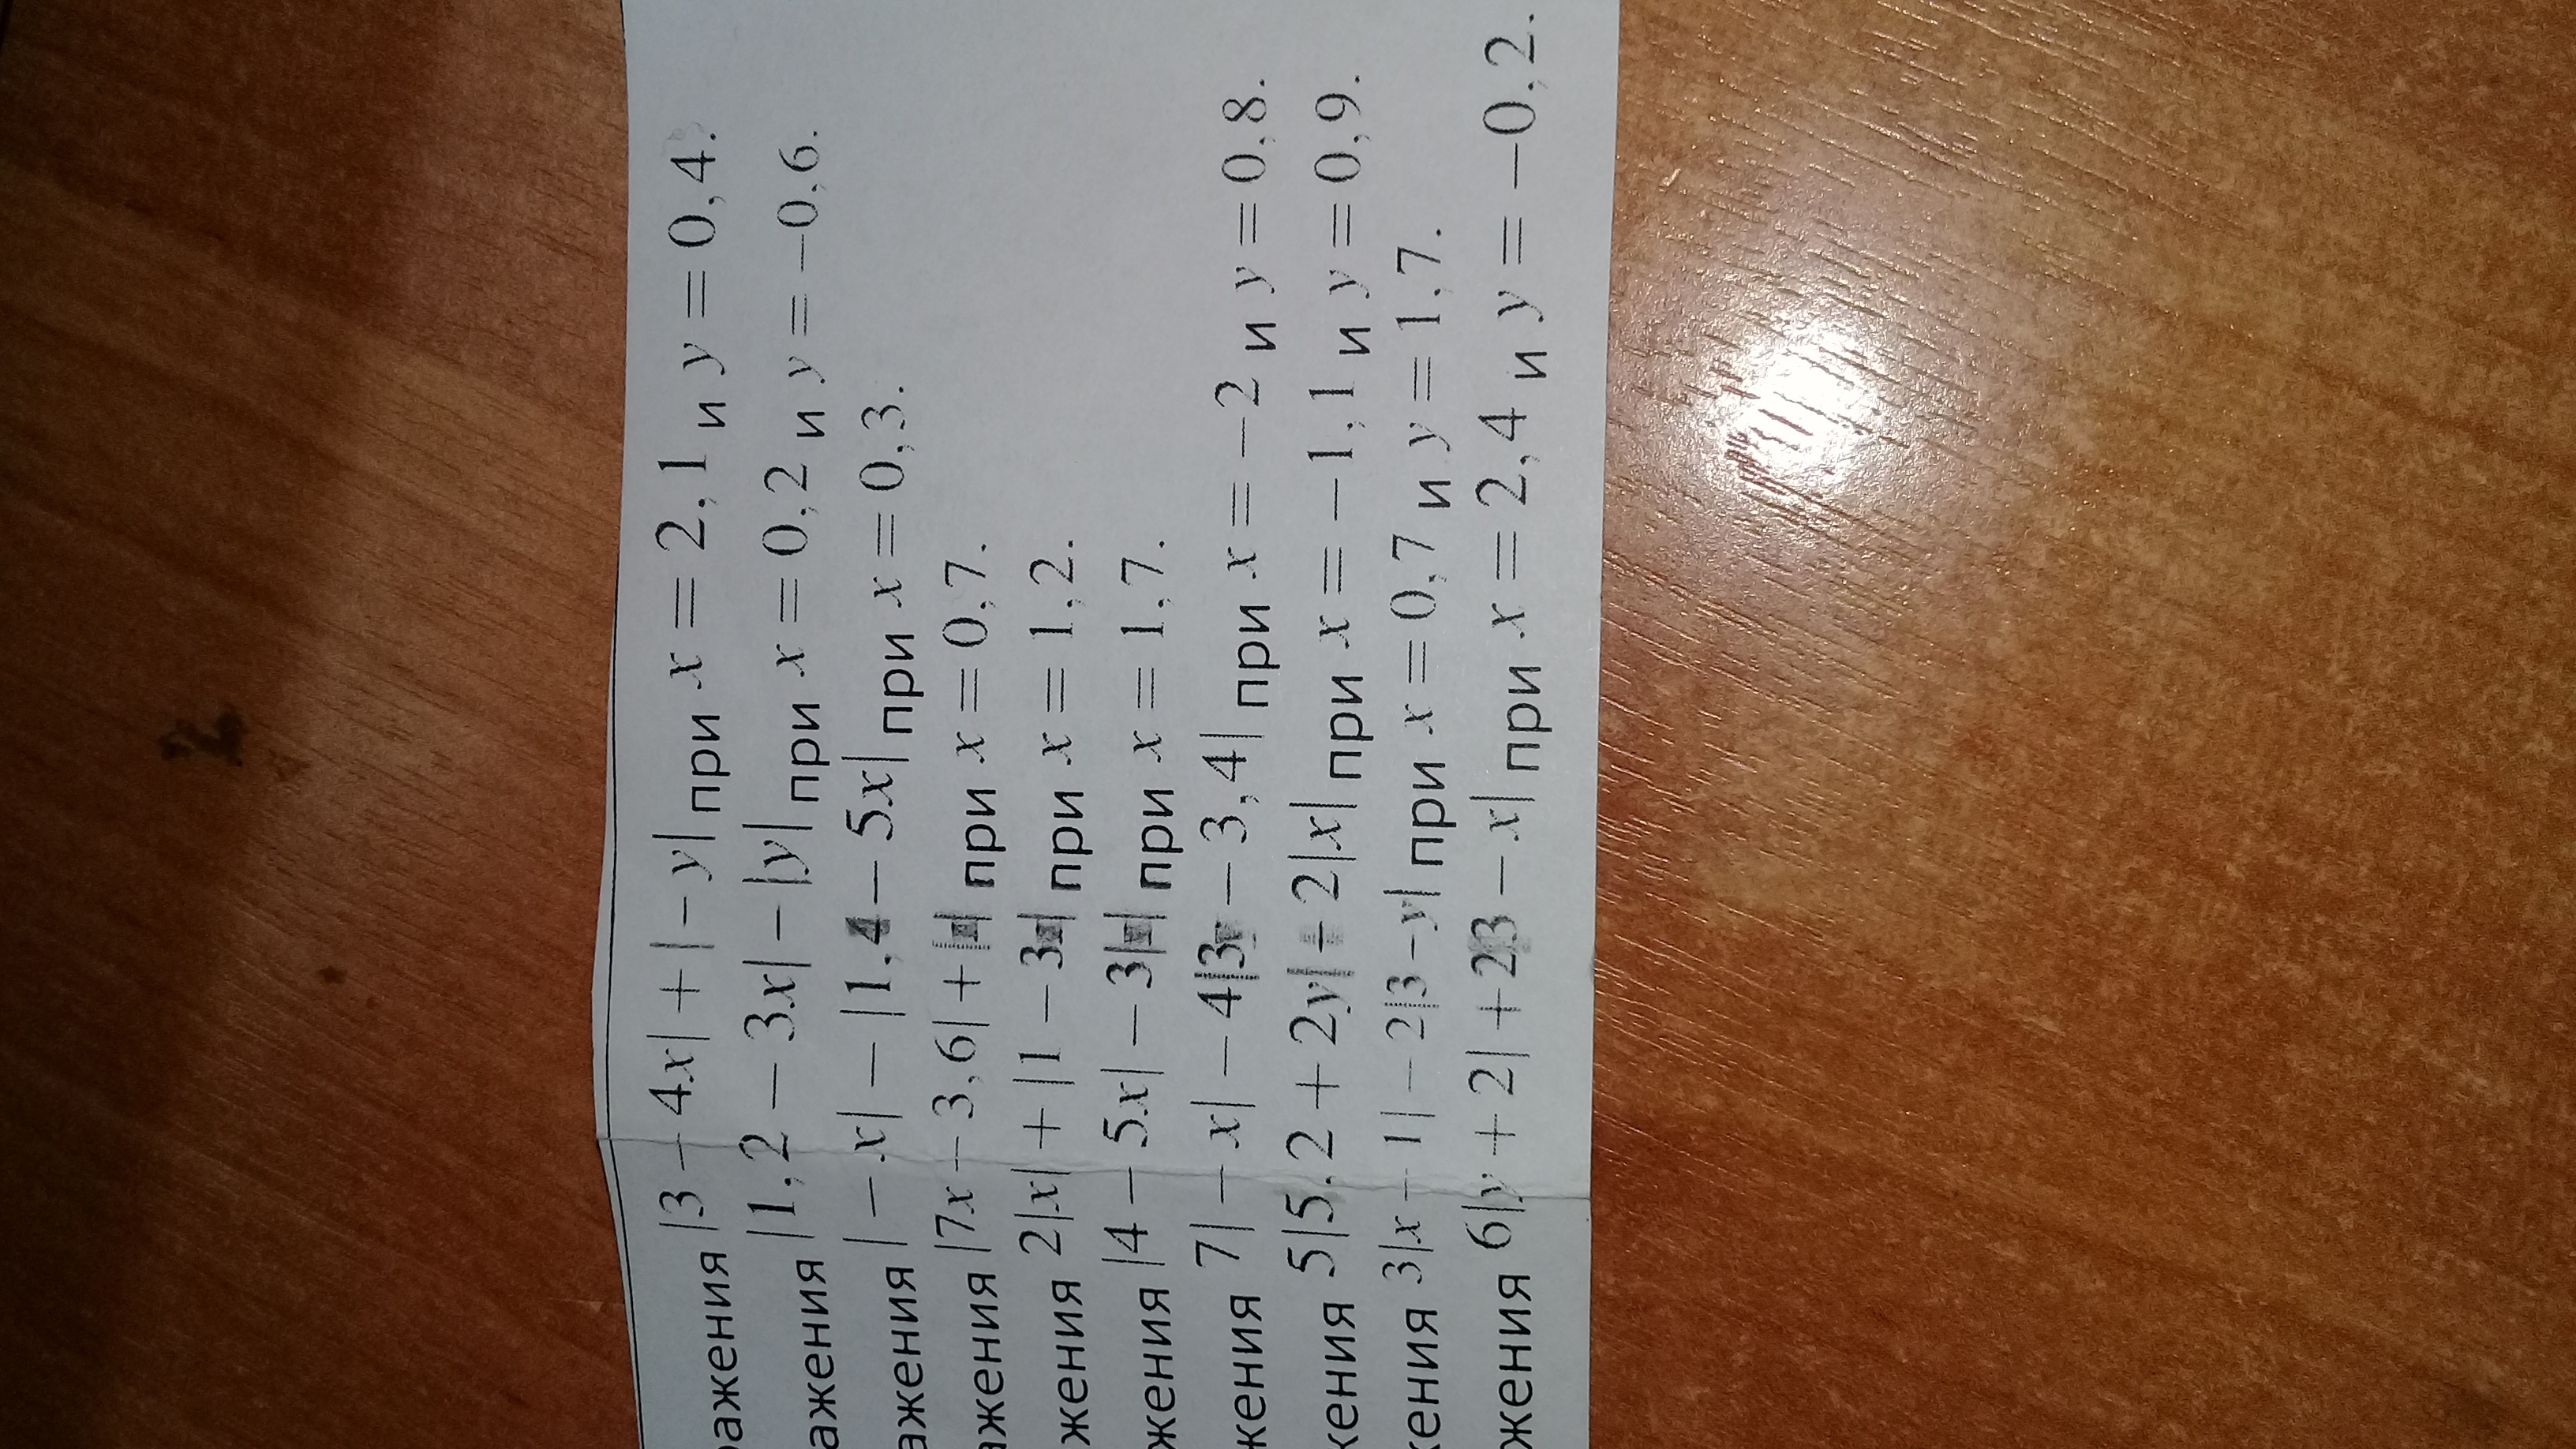 ражения |3 – 4x| + | – y| при x = 2,1 и y = 0,4.
ажения |1,2 – 3x| – |y| при x = 0,2 и y = –0,6.
ажения | – x| – |1,4 – 5x| при x = 0,3.
ажения |7x – 3,6| + |x| при x = 0,7.
жения 2|x| + |1 – 3x| при x = 1,2.
жения |4 – 5x| – 3|x| при x = 1,7.
жения 7| – x| – 4|3y – 3,4| при x = –2 и y = 0,8.
жения 5|5,2 + 2y| – 2|x| при x = –1,1 и y = 0,9.
жения 3|x – 1| – 2|3 – y| при x = 0,7 и y = 1,7.
жения 6|y + 2| + 2|3 – x| при x = 2,4 и y = –0,2.